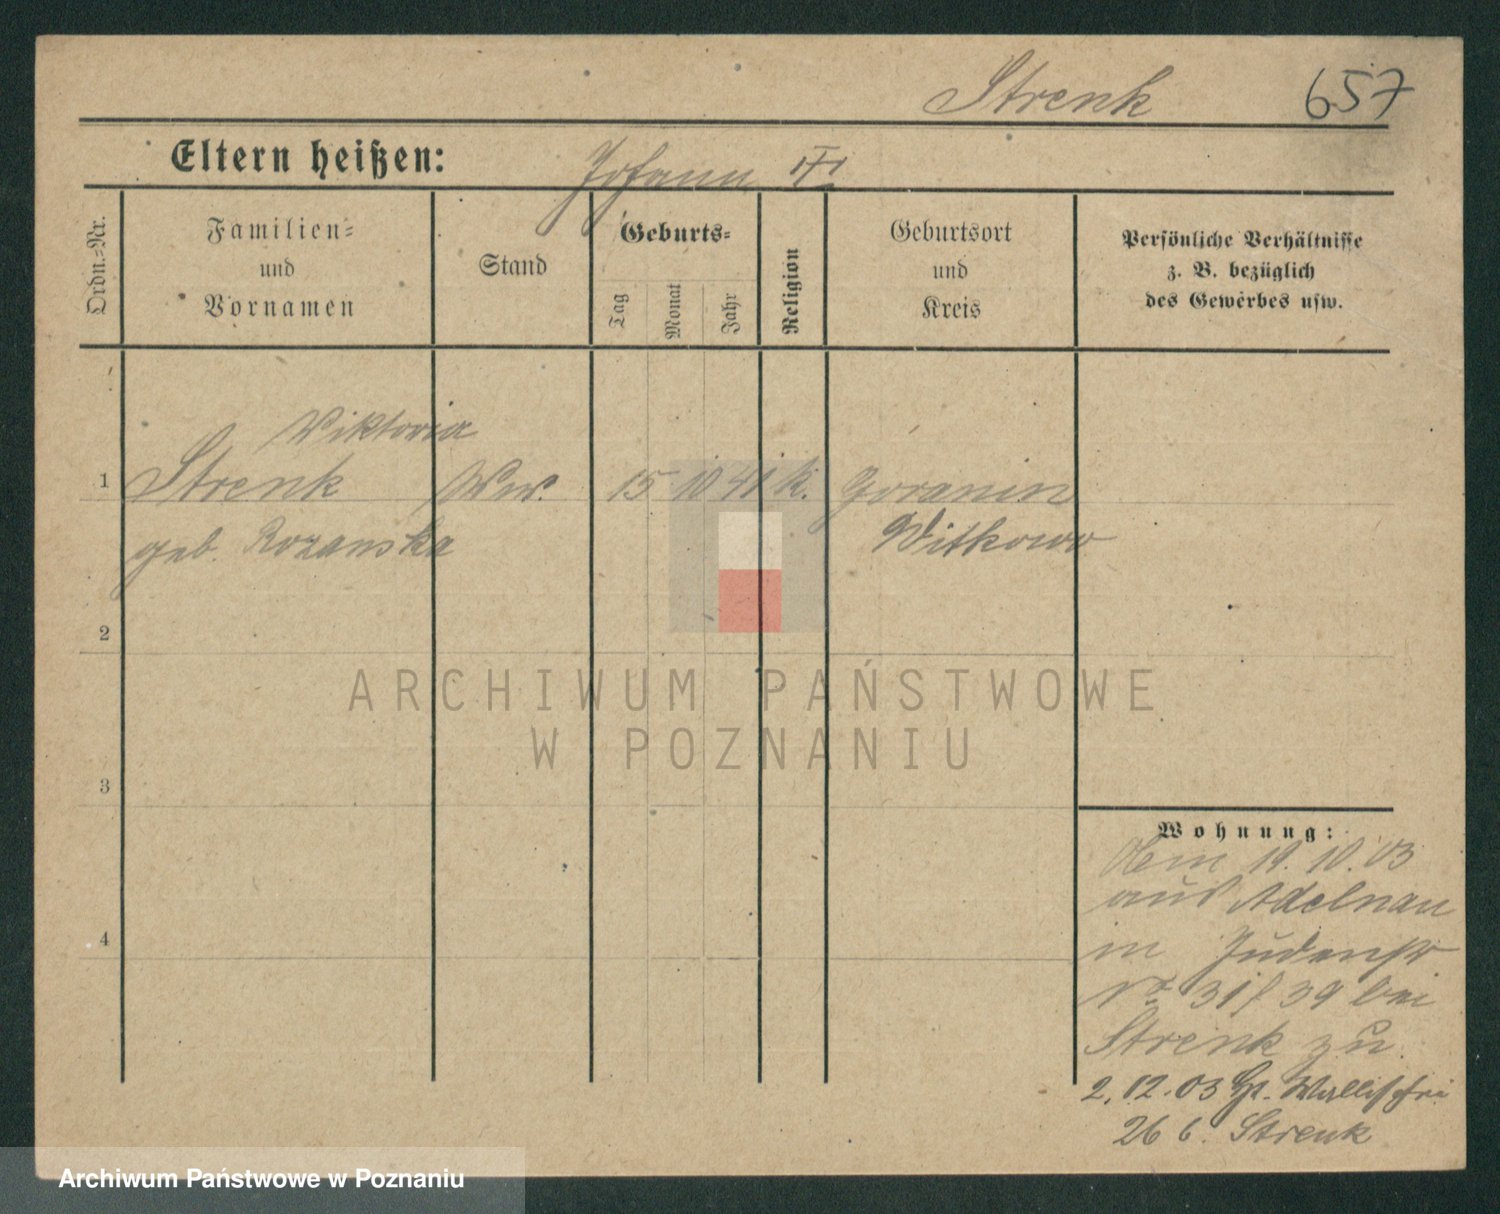 Strenk 657
Eltern heißen: Johann
Ordn.-Nr.
Familien-
und
Vornamen
Stand
Geburts-
Tag
Monat
Jahr
Religion
Geburtsort
und
Kreis
Persönliche Verhältnisse
z. B. bezüglich
des Gewerbes usw.
Viktoria
1 Strenk Ww. 15 10 41 k. Goranin
geb. Rozanska Witkowo
2
ARCHIWUM PAŃSTWOWE
W POZNANIU
3
Wohnung:
19. 10. 03
aus Adelnau
in Judenstr
No 31/39 bei
4
Strenk zu
2. 12. 03
26 b. Strenk
Archiwum Państwowe w Poznaniu